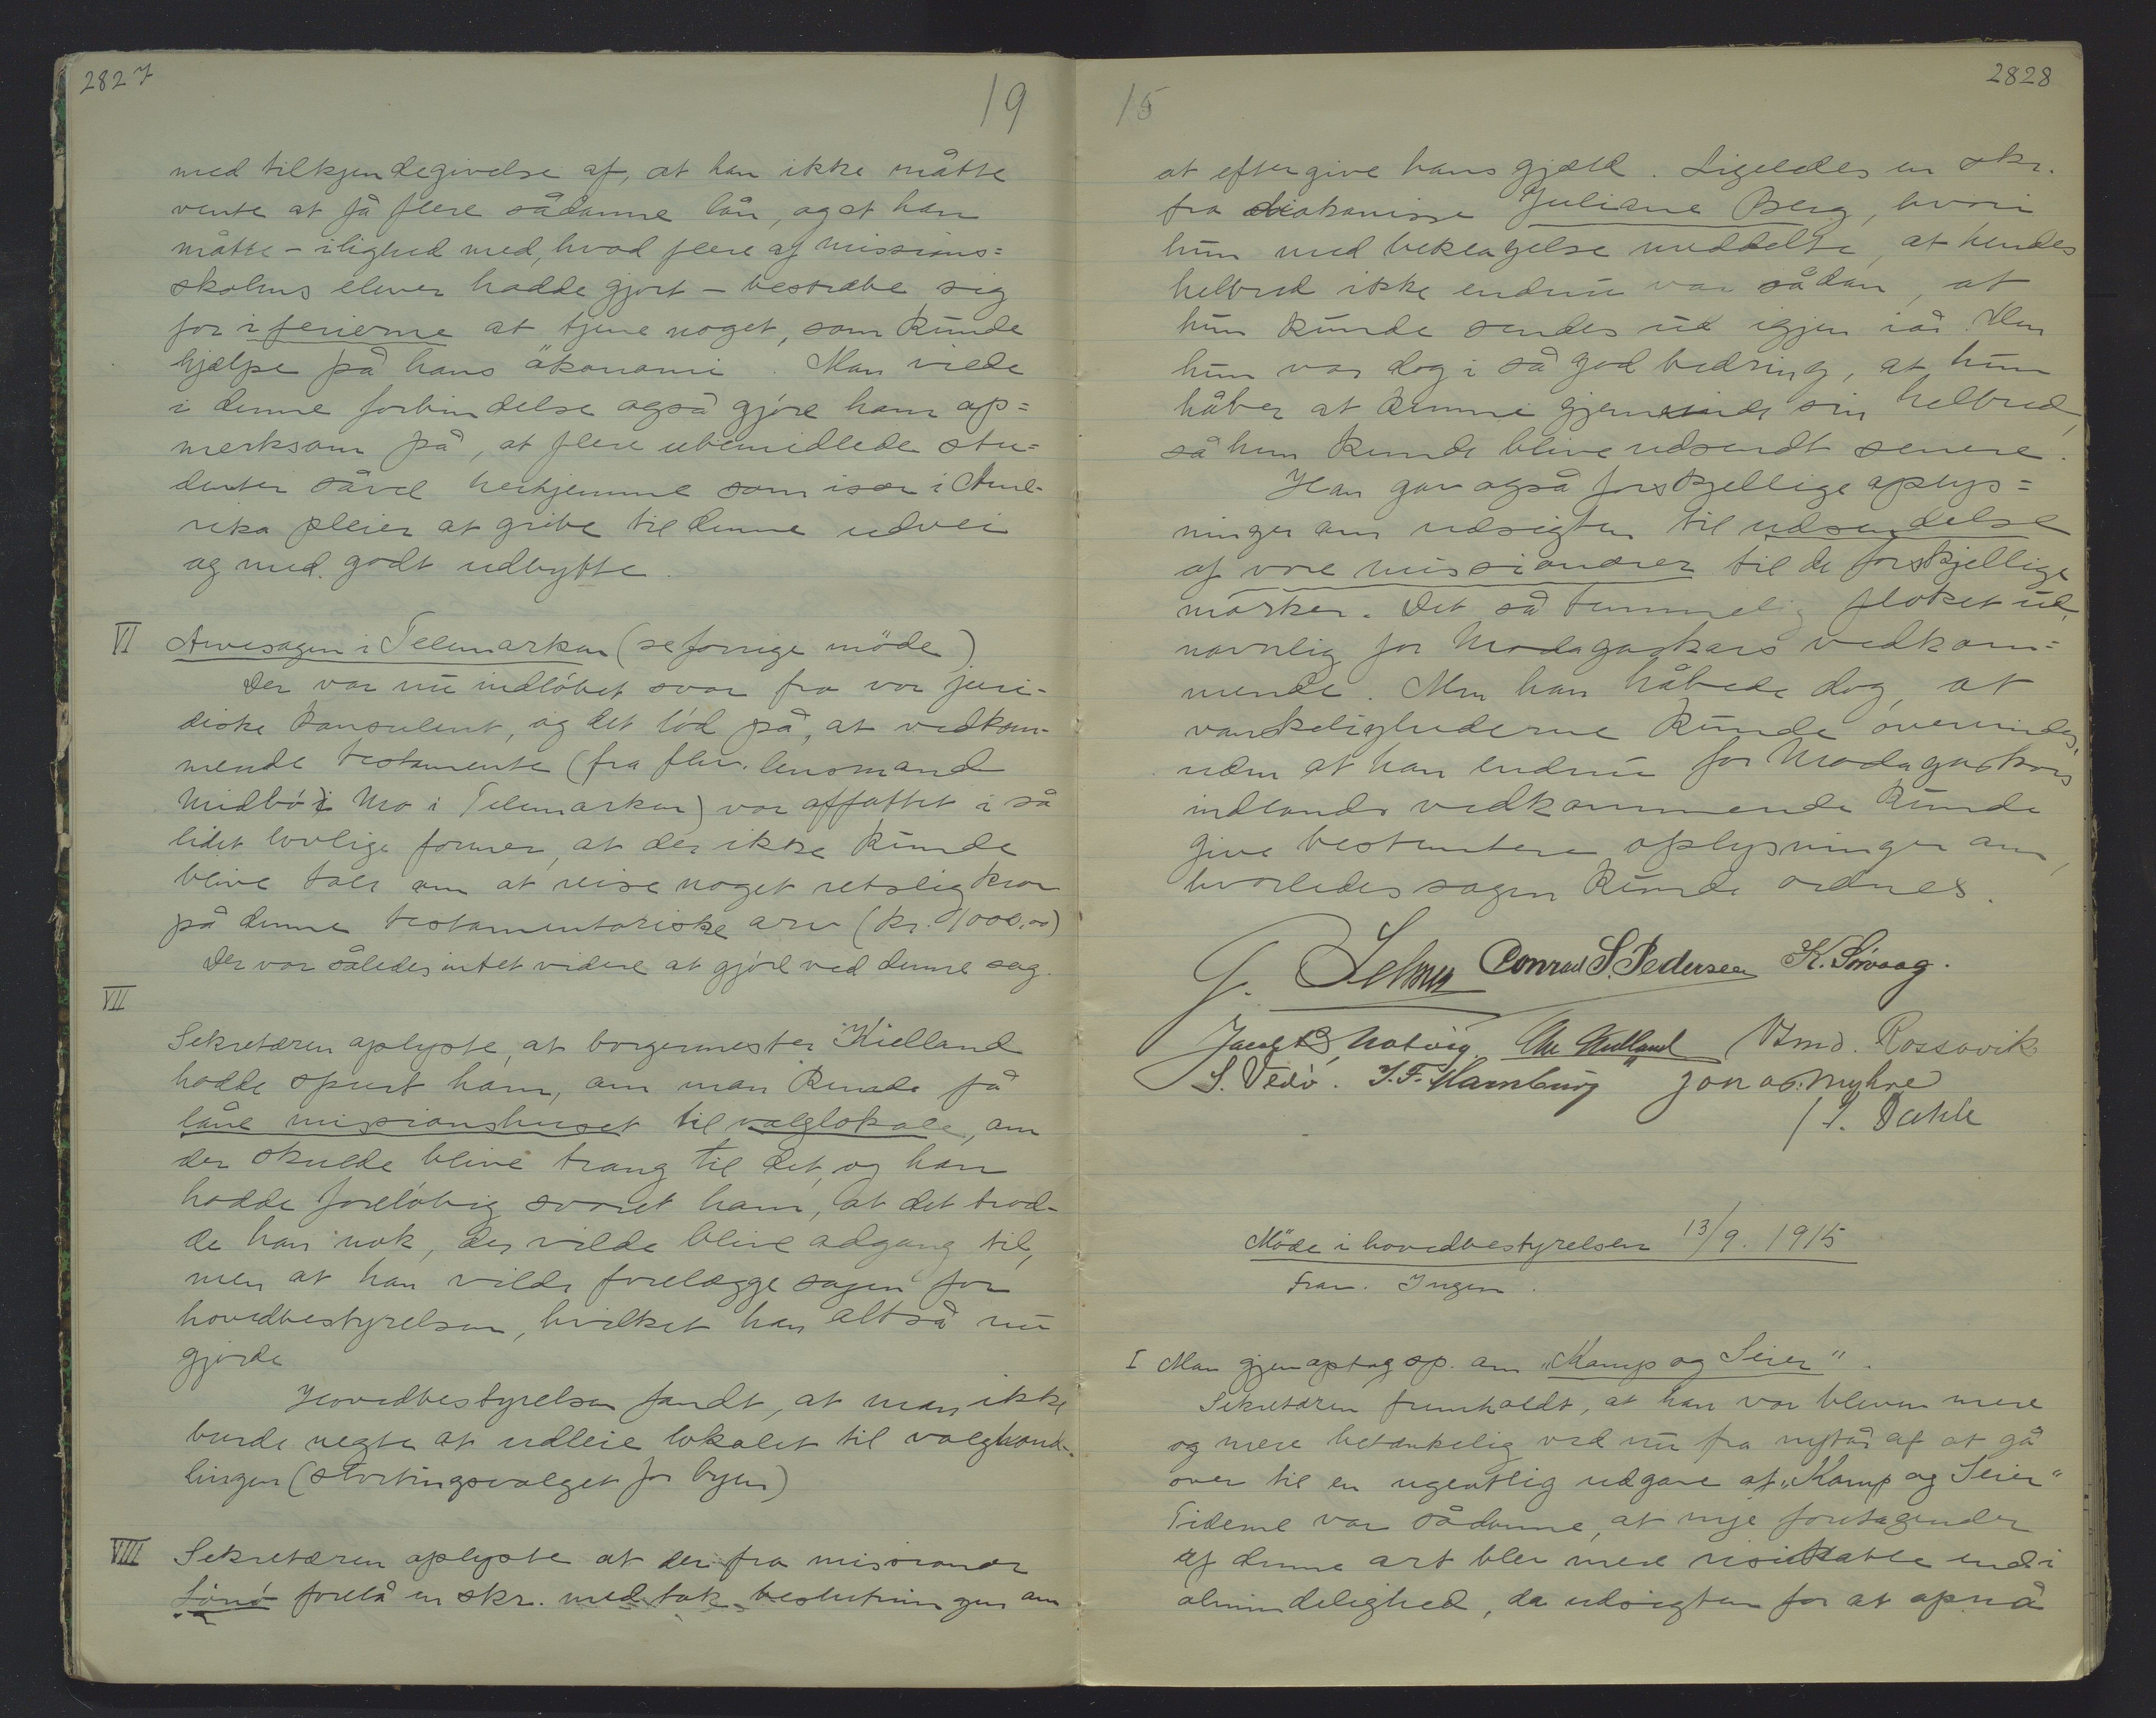 2827
19
med tilkjendegivelse af, at han ikke måtte
vente at få flere sådanne lån, og at han
måtte – i lighed med, hvad flere af missions=
skolens elever hadde gjort – bestræbe sig
for i ferierne at tjene noget, som kunde
hjælpe på hans ökonomi. Man vilde
i denne forbindelse også gjöre ham op=
merksom på, at flere ubemidlede stu=
denter såvel herhjemme som især i Ame-
rika pleier at gribe til denne udvei
og med godt udbytte.
VI Arvesagen i Telemarken (se forrige möde)
Der var nu indlöbet svar fra vor juri-
diske konsulent, og det löd på, at vedkom-
mende testamente (fra fhv. lensmand
Midbö i Mo i Telemarken) var affattet i så
lidet lovlige former, at der ikke kunde
blive tale om at reise noget retslig krav
på denne testamentariske arv (kr. 1000,00)
Der var således intet videre at gjöre ved denne sag.
VII
Sekretæren oplyste, at borgermester Kielland
hadde spurt ham, om man kunde få
låne missionshuset til valglokale, om
der skulde blive trang til det, og han
hadde forelöbig svaret ham, at det trod-
de han nok, der vilde blive adgang til,
men at han vilde forelægge sagen for
hovedbestyrelsen, hvilket han altså nu
gjorde
Hovedbestyrelsen fandt, at man ikke
burde negte at udleie lokalet til valghand-
lingen (stortingsvalget for byen)
VIII Sekretæren oplyste at der fra missionær
Lönö forelå en skr. med tak beslutningen om
15
2828
at eftergive hans gjæld. Ligeledes en skr.
fra diakonisse Juliane Berg, hvori
hun med beklagelse meddelte, at hendes
helbred ikke endnu var sådan, at
hun kunde sendes ud igjen iår. Men
hun var dog i så god bedring, at hun
håber at kunne gjenvinde sin helbred,
så hun kunde blive udsendt senere.
Han gav også forskjellige oplys=
ninger om udsigten til udsendelse
af vore missionærer til de forskjellige
marker. Det så temmelig floket ud,
navnlig for Madagaskars vedkom=
mende. Men han håbede dog, at
vanskelighederne kunde overvindes,
uden at han endnu for Madagaskars
indlands vedkommende kunde
give bestemtere oplysninger om,
hvorledes sagen kunde ordnes.
J. Selmer Conrad S. Pedersen K. Sörvaag.
Jacob B. Natvig Chr Kielland Amd. Rossavik
S. Vedö. J. F. Hamburg Jon as. Myhre
/ L. Dahle
Möde i hovedbestyrelsen 13/9. 1915
Frav. Ingen.
I Man gjenoptog sp. om "Kamp og Seier".
Sekretæren fremholdt, at han var bleven mere
og mere betænkelig ved nu fra nytår af at gå
over til en ugentlig udgave af "Kamp og Seier"
Tiderne var sådanne, at nye foretagender
af denne art blev mere risikable end i
almindelighed, da udsigten for at opnå